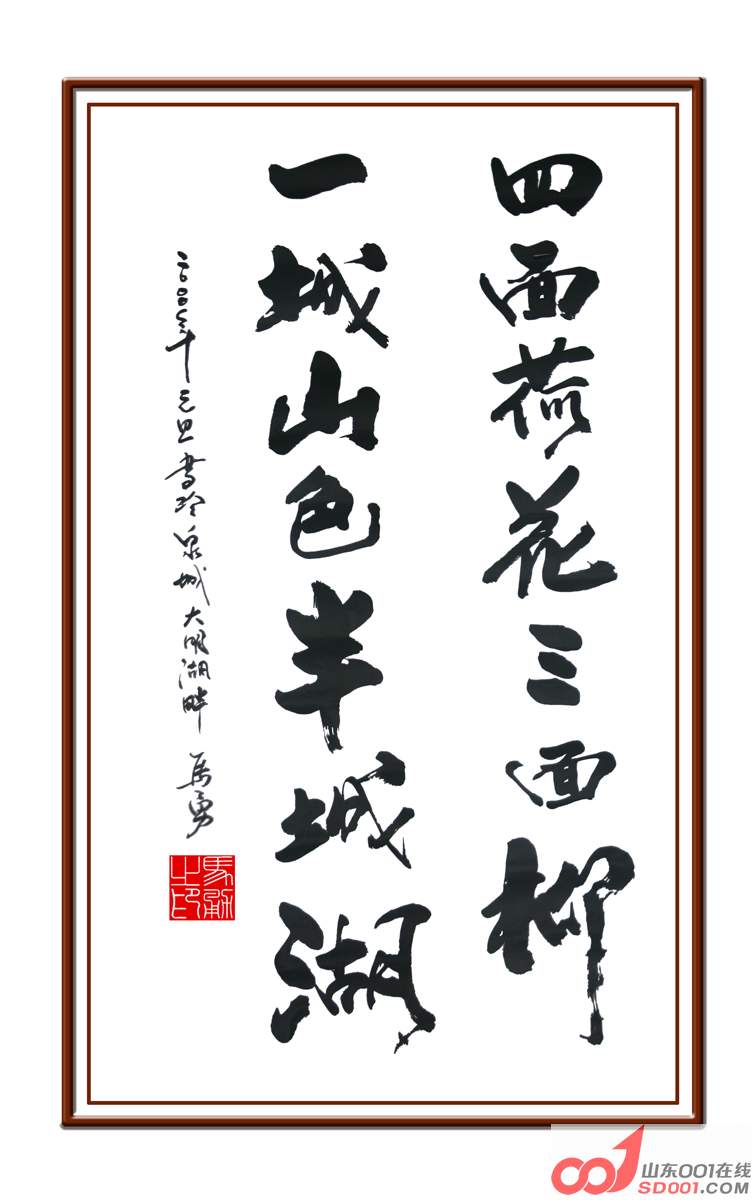 四面荷花三面柳
一城山色半城湖
二〇〇八年元旦书於泉城大明湖畔 马勇
马勇之印
山东001在线
SD001.COM